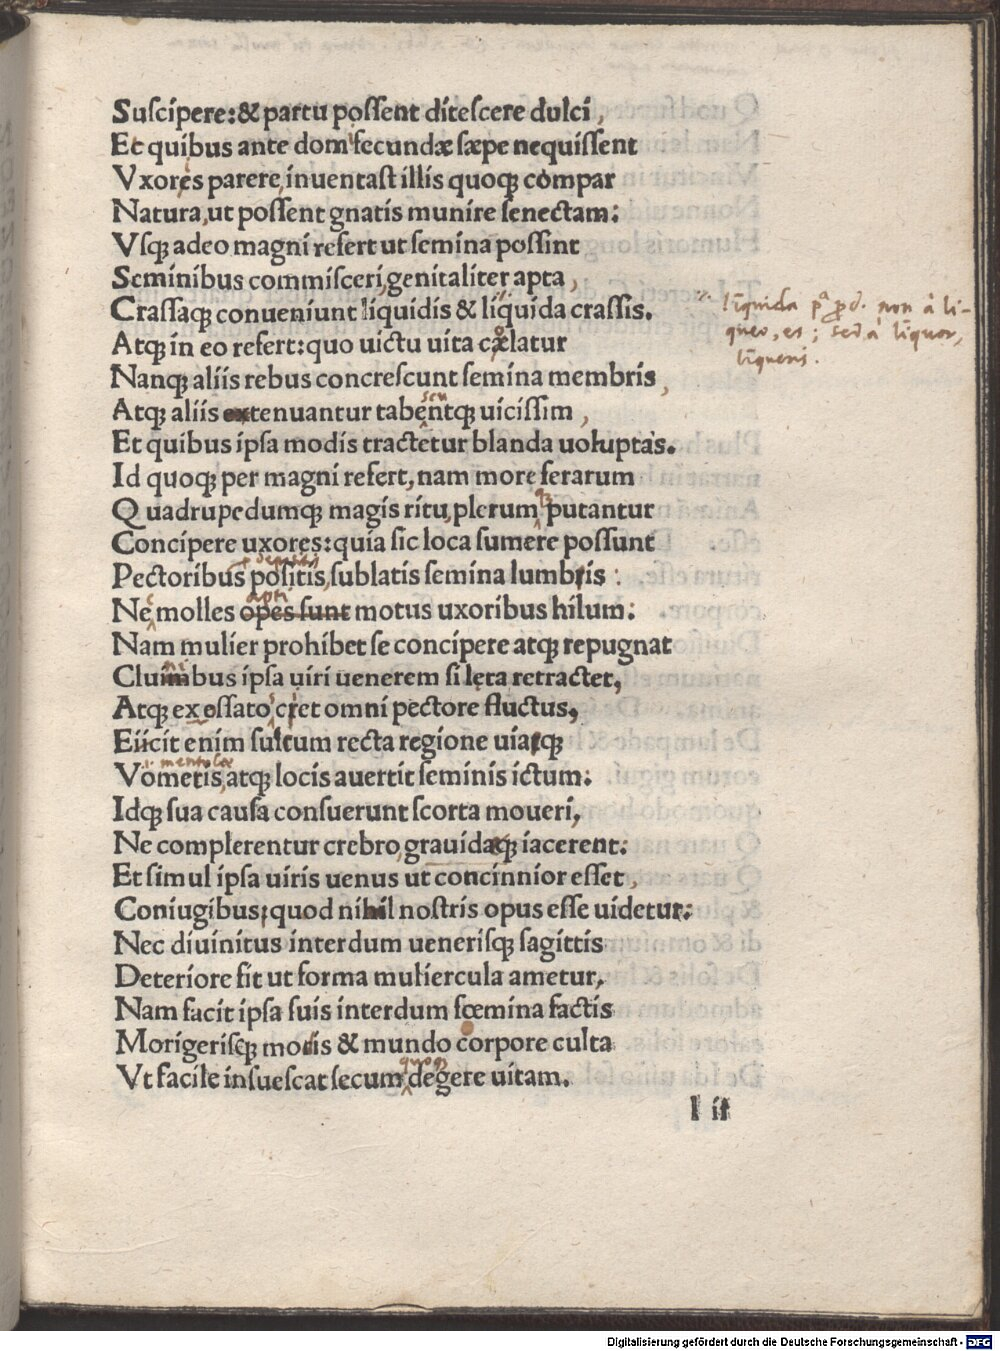 Suscipere: & partu possent ditescere dulci,
Et quibus ante domi fecundæ sæpe nequissent
Vxores parere, inuentast illis quoqꝫ compar
Natura, ut possent gnatis munire senectam:
Vsqꝫ adeo magni refert ut semina possint
Seminibus commisceri, genitaliter apta,
Crassaqꝫ conueniunt liquidis & liquida crassis.
liq̄uida pᵃ ꝓd. non à li-
queo, es; sed à liquor,
liqueris.
Atqꝫ in eo refert: quo uictu uita colatur
Nanqꝫ aliis rebus concrescunt semina membris,
Atqꝫ aliis extenuantur tabentqꝫ uicissim,
seu
Et quibus ipsa modis tractetur blanda uoluptas.
Id quoqꝫ per magni refert, nam more ferarum
Quadrupedumqꝫ magis ritu, plerumqꝫ putantur
Concipere uxores: quia sic loca sumere possunt
Pectoribus positis, sublatis semina lumbis:
apti
Nec molles opes sunt motus uxoribus hilum:
Nam mulier prohibet se concipere atqꝫ repugnat
Clunibus ipsa uiri uenerem si lęta retractet,
Atqꝫ exossato ciet omni pectore fluctus,
Eiicit enim sulcum recta regione uiaqꝫ
.i. mentolae
Vomeris, atqꝫ locis auertit seminis ictum:
Idqꝫ sua causa consuerunt scorta moueri,
Ne complerentur crebro, grauidæqꝫ iacerent:
Et simul ipsa uiris uenus ut concinnior esset,
Coniugibus; quod nihil nostris opus esse uidetur:
Nec diuinitus interdum uenerisqꝫ sagittis
Deteriore fit ut forma muliercula ametur,
Nam facit ipsa suis interdum fœmina factis
Morigerisqꝫ modis & mundo corpore culta
quoqꝫ
Vt facile insuescat secum degere uitam.
l ii
Digitalisierung gefördert durch die Deutsche Forschungsgemeinschaft - DFG